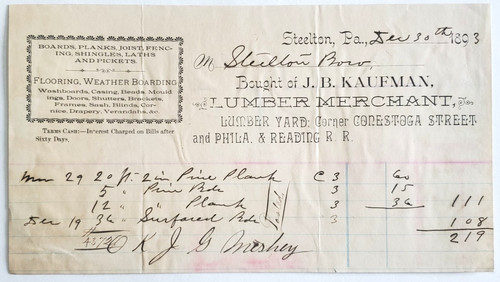 BOARDS, PLANKS, JOIST, FENC-
ING, SHINGLES, LATHS
AND PICKETS.
FLOORING, WEATHER BOARDING
Washboards, Casing, Beads, Mould
ings, Doors, Shutters, Brackets,
Frames, Sash, Blinds, Cor-
nice, Drapery, Verandahs, &c.
TERMS CASH:—Interest Charged on Bills after
Sixty Days.
Steelton, Pa., Dec 30th 1893
M Steelton Boro,
Bought of J. B. KAUFMAN,
LUMBER MERCHANT,
LUMBER YARD: Corner CONESTOGA STREET
and PHILA. & READING R. R.
29 20 ft. 2 in Pine Plank C 3 60
5 " Pine Bds 3 15
12 " " Plank 3 36 111
Dec 19 36 " Surfaced Bds 3 108
219
O K J G